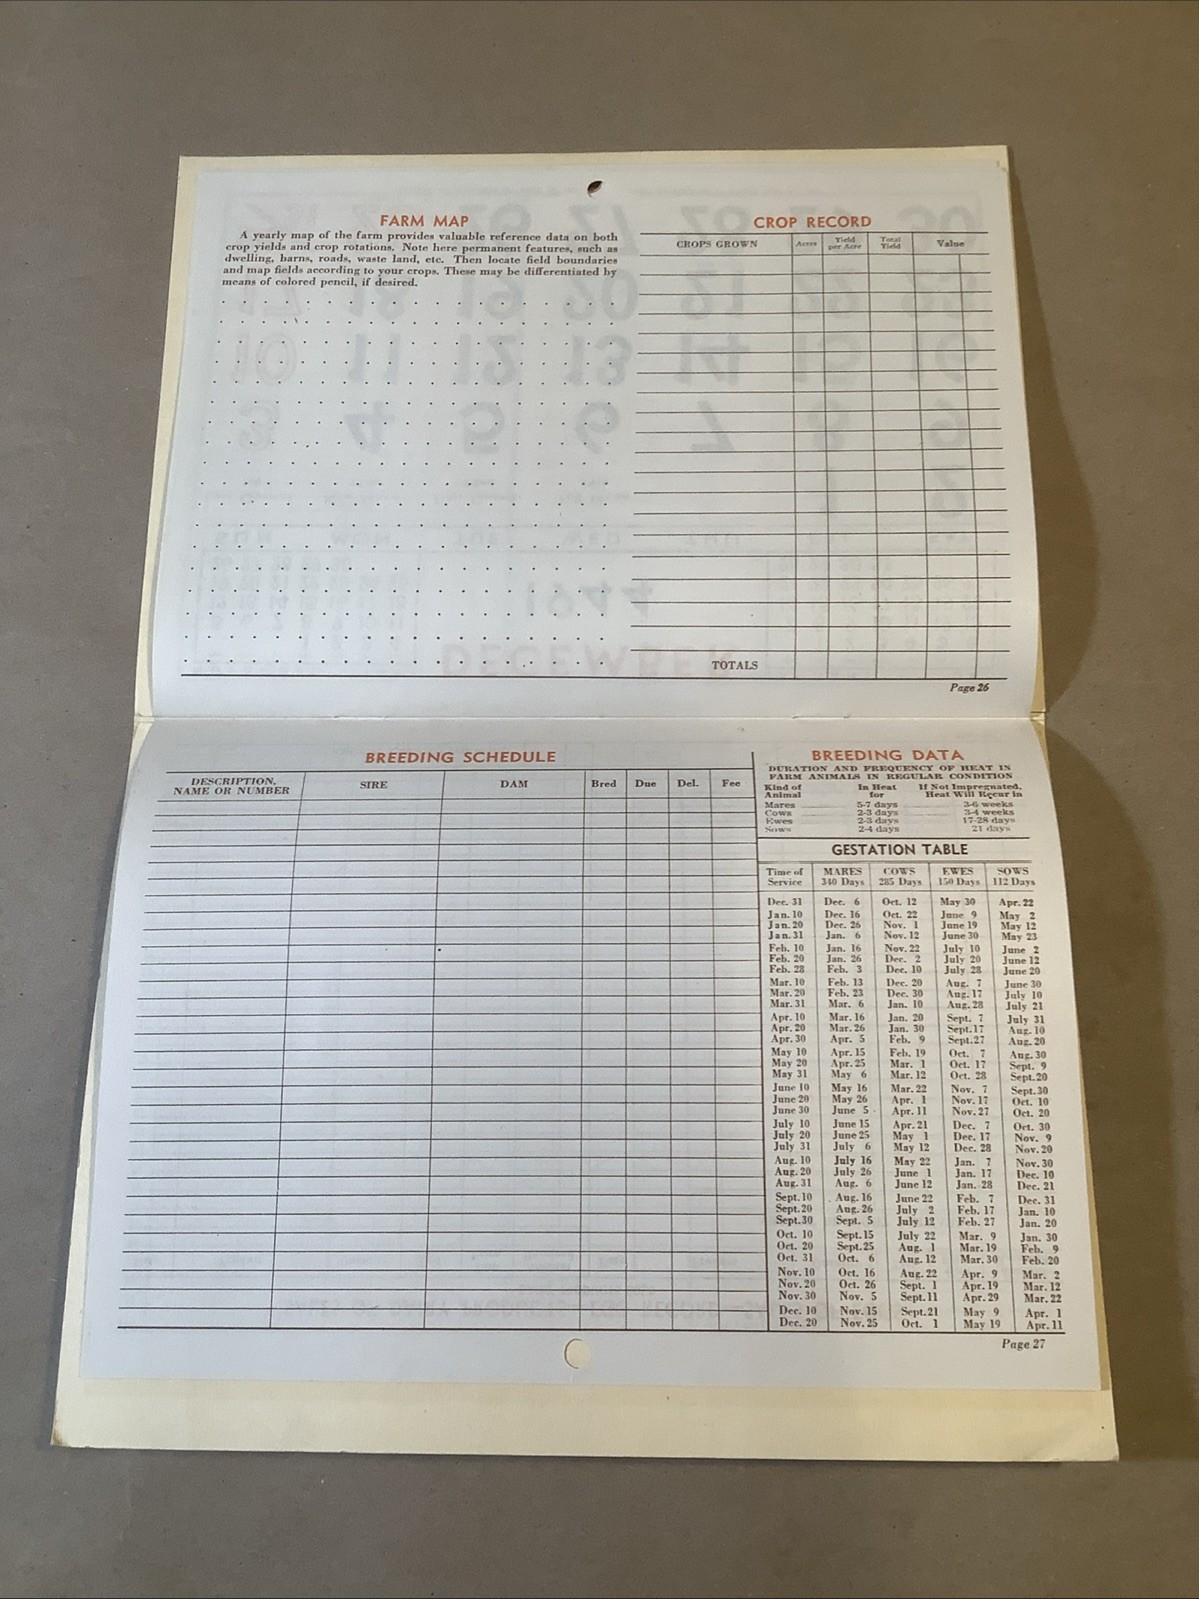 FARM MAP
A yearly map of the farm provides valuable reference data on both
crop yields and crop rotations. Note here permanent features, such as
dwelling, barns, roads, waste land, etc. Then locate field boundaries
and map fields according to your crops. These may be differentiated by
means of colored pencil, if desired.
CROP RECORD
CROPS GROWN Acres Yield per Acre Total Yield Value
TOTALS
Page 26
BREEDING SCHEDULE
DESCRIPTION, NAME OR NUMBER SIRE DAM Bred Due Del. Fee
BREEDING DATA
DURATION AND FREQUENCY OF HEAT IN
FARM ANIMALS IN REGULAR CONDITION
Kind of Animal In Heat for If Not Impregnated, Heat Will Recur in
Mares 5-7 days 3-6 weeks
Cows 2-3 days 3-4 weeks
Ewes 2-3 days 17-28 days
Sows 2-4 days 21 days
GESTATION TABLE
Time of Service MARES 340 Days COWS 285 Days EWES 150 Days SOWS 112 Days
Dec. 31 Dec. 6 Oct. 12 May 30 Apr. 22
Jan. 10 Dec. 16 Oct. 22 June 9 May 2
Jan. 20 Dec. 26 Nov. 1 June 19 May 12
Jan. 31 Jan. 6 Nov. 12 June 30 May 23
Feb. 10 Jan. 16 Nov. 22 July 10 June 2
Feb. 20 Jan. 26 Dec. 2 July 20 June 12
Feb. 28 Feb. 3 Dec. 10 July 28 June 20
Mar. 10 Feb. 13 Dec. 20 Aug. 7 June 30
Mar. 20 Feb. 23 Dec. 30 Aug. 17 July 10
Mar. 31 Mar. 6 Jan. 10 Aug. 28 July 21
Apr. 10 Mar. 16 Jan. 20 Sept. 7 July 31
Apr. 20 Mar. 26 Jan. 30 Sept. 17 Aug. 10
Apr. 30 Apr. 5 Feb. 9 Sept. 27 Aug. 20
May 10 Apr. 15 Feb. 19 Oct. 7 Aug. 30
May 20 Apr. 25 Mar. 1 Oct. 17 Sept. 9
May 31 May 6 Mar. 12 Oct. 28 Sept. 20
June 10 May 16 Mar. 22 Nov. 7 Sept. 30
June 20 May 26 Apr. 1 Nov. 17 Oct. 10
June 30 June 5 Apr. 11 Nov. 27 Oct. 20
July 10 June 15 Apr. 21 Dec. 7 Oct. 30
July 20 June 25 May 1 Dec. 17 Nov. 9
July 31 July 6 May 12 Dec. 28 Nov. 20
Aug. 10 July 16 May 22 Jan. 7 Nov. 30
Aug. 20 July 26 June 1 Jan. 17 Dec. 10
Aug. 31 Aug. 6 June 12 Jan. 28 Dec. 21
Sept. 10 Aug. 16 June 22 Feb. 7 Dec. 31
Sept. 20 Aug. 26 July 2 Feb. 17 Jan. 10
Sept. 30 Sept. 5 July 12 Feb. 27 Jan. 20
Oct. 10 Sept. 15 July 22 Mar. 9 Jan. 30
Oct. 20 Sept. 25 Aug. 1 Mar. 19 Feb. 9
Oct. 31 Oct. 6 Aug. 12 Mar. 30 Feb. 20
Nov. 10 Oct. 16 Aug. 22 Apr. 9 Mar. 2
Nov. 20 Oct. 26 Sept. 1 Apr. 19 Mar. 12
Nov. 30 Nov. 5 Sept. 11 Apr. 29 Mar. 22
Dec. 10 Nov. 15 Sept. 21 May 9 Apr. 1
Dec. 20 Nov. 25 Oct. 1 May 19 Apr. 11
Page 27